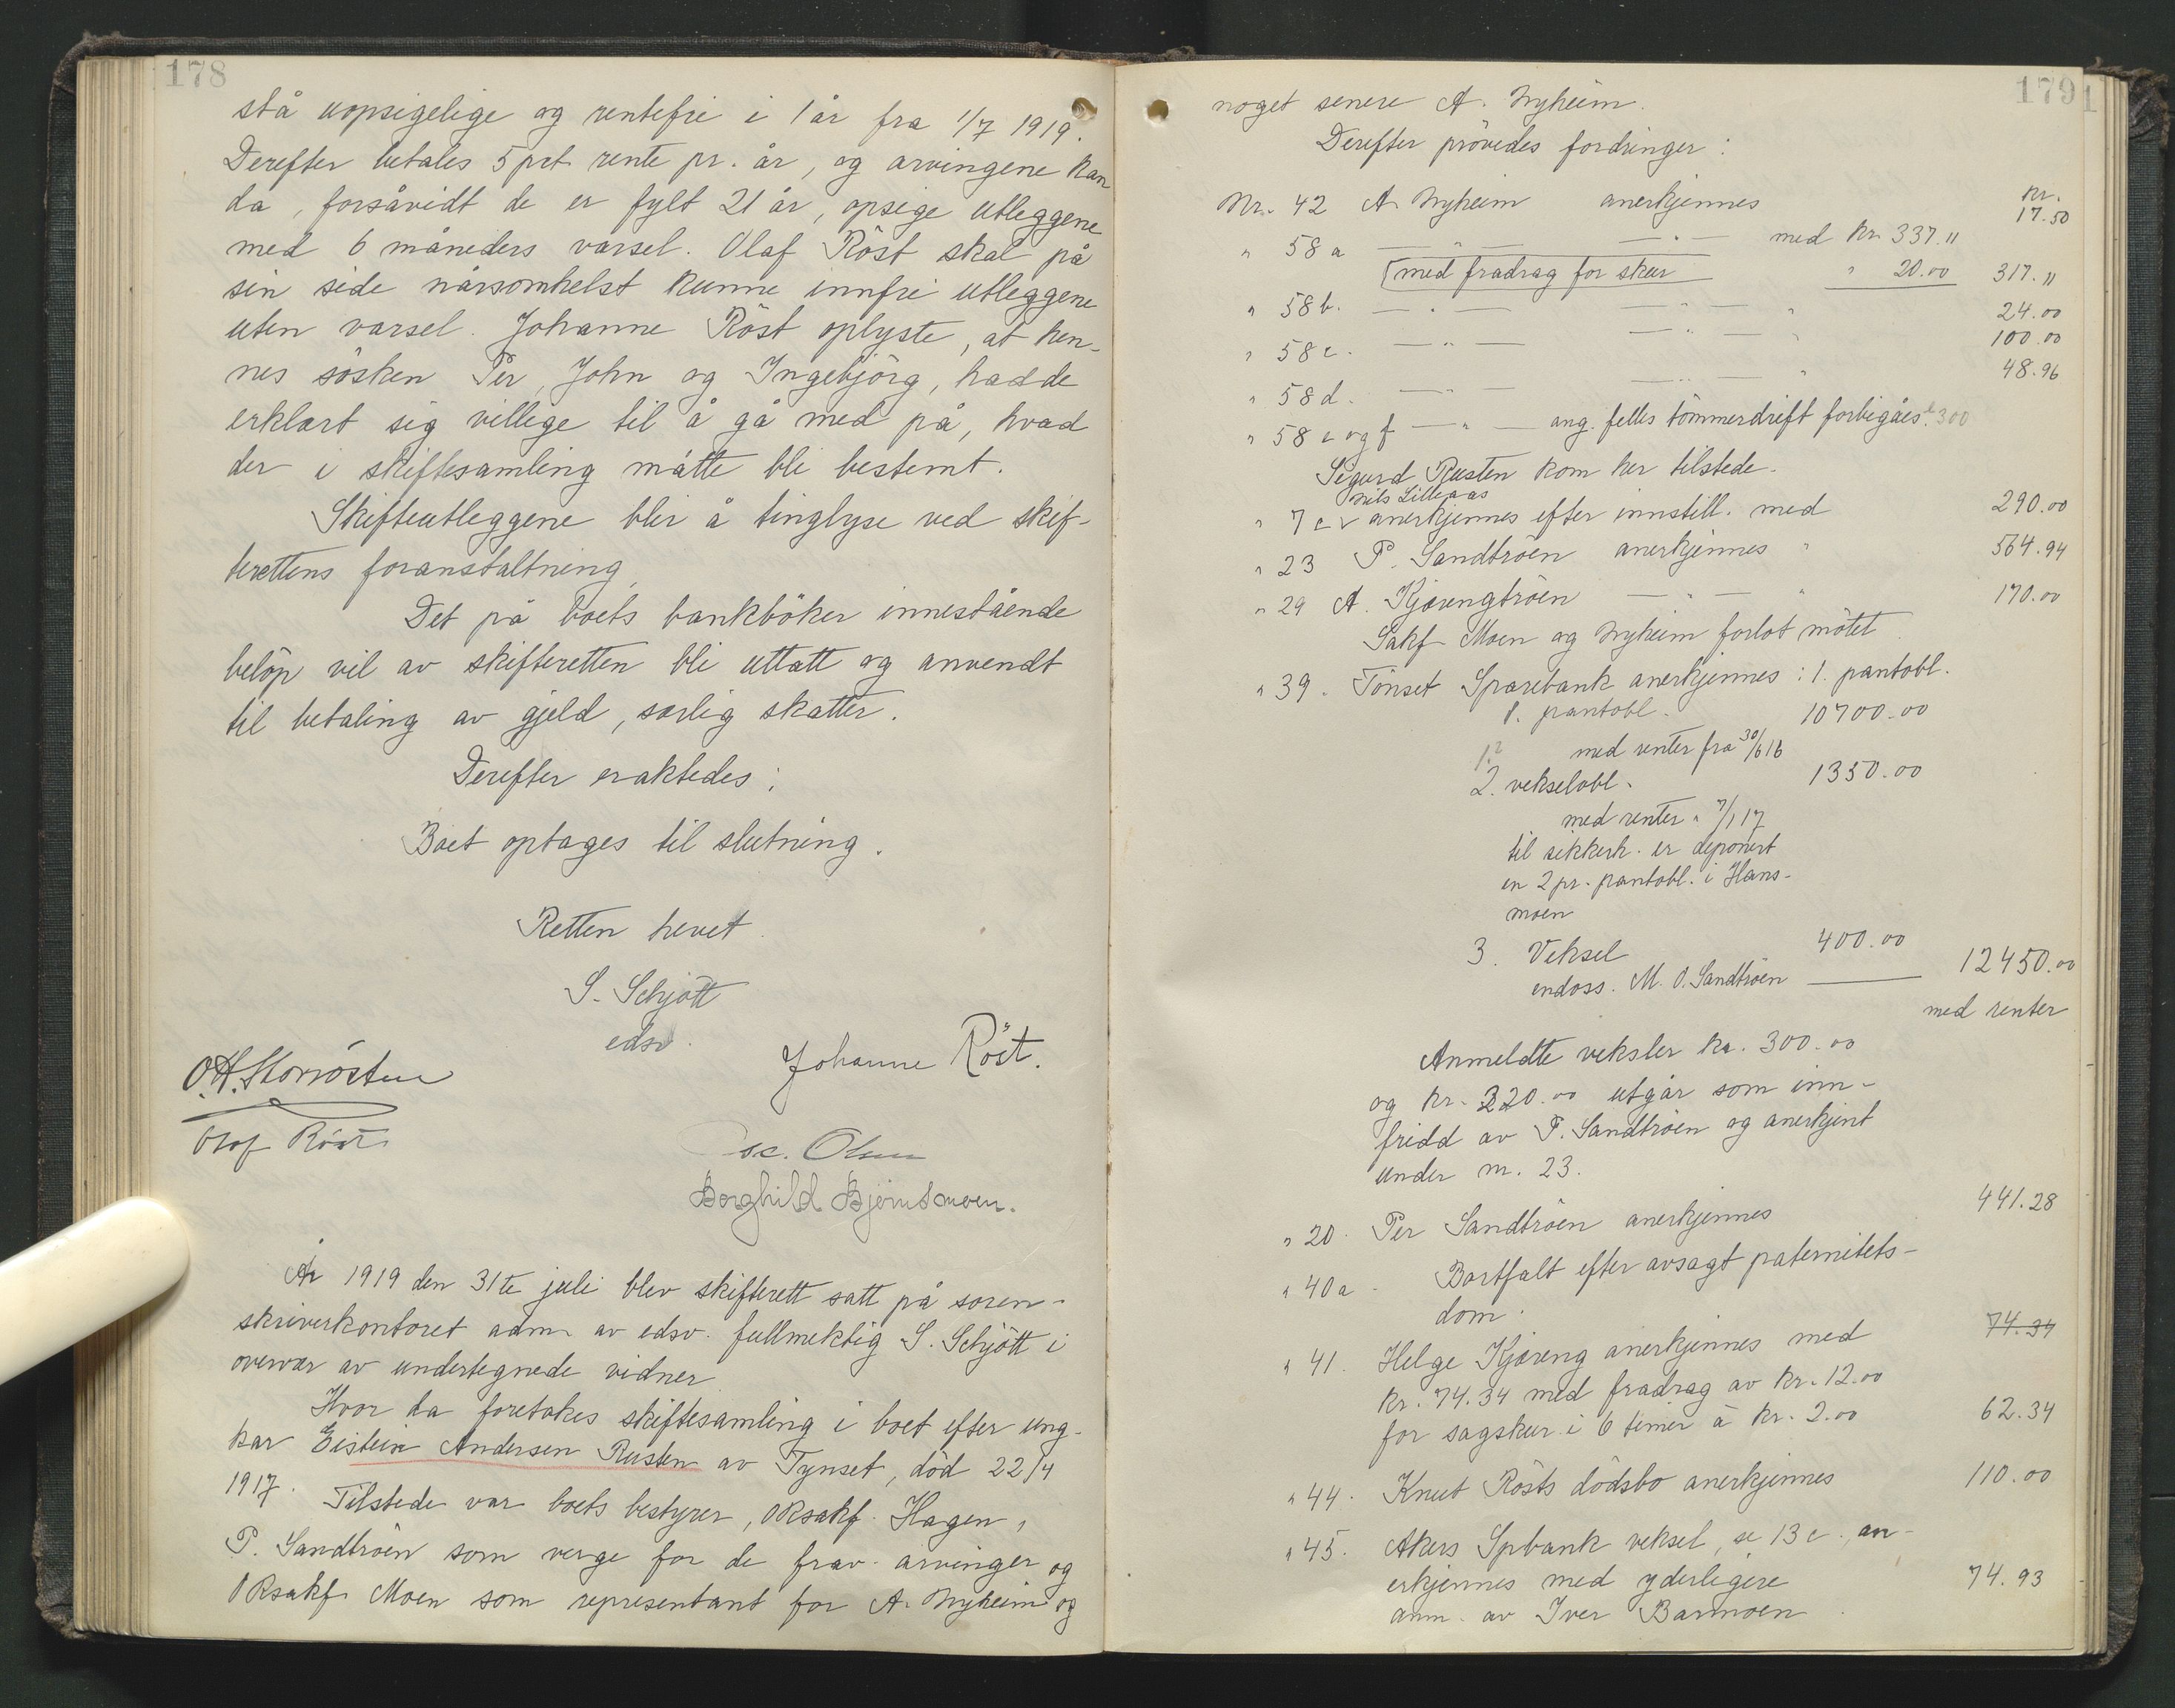 178
stå uopsigelige og rentefri i 1 år fra 1/7 1919.
Derefter betales 5 prt rente pr. år, og arvingene kan
da, forsåvidt de er fylt 21 år, opsige utleggene
med 6 måneders varsel. Olaf Röst skal på
sin side nårsomhelst kunne innfri utleggene
uten varsel. Johanne Röst oplyste, at hen-
nes sösken Per, John og Ingebjörg, hadde
erklært sig villige til å gå med på, hvad
der i skiftesamling måtte bli bestemt.
Skifteutleggene blir å tinglyse ved skif-
terettens foranstaltning.
Det på boets bankböker innestående
belöp vil av skifteretten bli uttatt og anvendt
til betaling av gjeld, særlig skatter.
Derefter eraktedes:
Boet optages til slutning.
Retten hevet.
S. Schjött
edsv.
Johanne Röst.
O.H. Storrösten
Olof Röst
Osc. Olsen
Borghild Bjørnsmoen.
År 1919 den 31te juli blev skifterett satt på soren-
skriverkontoret adm. av edsv. fullmektig S. Schjött i
overvær av undertegnede vidner.
Hvor da foretokes skiftesamling i boet efter ung-
kar Eistein Andersen Rusten av Tynset, död 22/4
1917. Tilstede var boets bestyrer, Oksakf. Hagen,
P. Sandtröen som verge for de frav. arvinger og
Oksakf. Moen som representant for A. Nyheim og
1791
noget senere A. Nyheim.
Derefter prövedes fordringer:
Nr. 42 A. Nyheim anerkjennes kr. 17.50
" 58 a — " — — " — med kr. 337.11
med fradrag for skur " 20.00 317.11
" 58 b. — " — — " — " 24.00
" 58 c. — " — — " — " 100.00
" 58 d. — " — — " — " 48.96
" 58 e og f — " — ang. felles tömmerdrift forbigåes. 300
Sigurd Rusten kom her tilstede.
Nils Lilleaas
" 7 c v anerkjennes efter innstill. med 290.00
" 23 P. Sandtröen anerkjennes " 564.94
" 29 A. Kjærengtröen — " — " 170.00
Sakf Moen og Nyheim forlot mötet.
" 39. Tönset Sparebank anerkjennes: 1. pantobl.
1. pantobl. 10700.00
1? med renter fra 30/6 16
2. vekselobl. 1350.00
med renter " 7/1 17
til sikkerh. er deponert
en 2 pr. pantobl. i Hans-
moen
3. Veksel 400.00
endoss. M. O. Sandtröen 12450.00
med renter
Anmeldte veksler kr. 300.00
og kr. 320.00 utgår som inn-
fridd av P. Sandtröen og anerkjent
under nr. 23.
" 20. Per Sandtröen anerkjennes 441.28
" 40 a. Bortfalt efter avsagt paternitets-
dom.
" 41. Helge Kjæreng anerkjennes med 74.34
kr. 74.34 med fradrag av kr. 12.00
for sagskur i 6 timer à kr. 2.00 62.34
" 44. Knut Rösts dödsbo anerkjennes 110.00
" 45. Akers Spbank veksel, se 13 c, an-
erkjennes med yderligere 74.93
anm. av Iver Barmoen